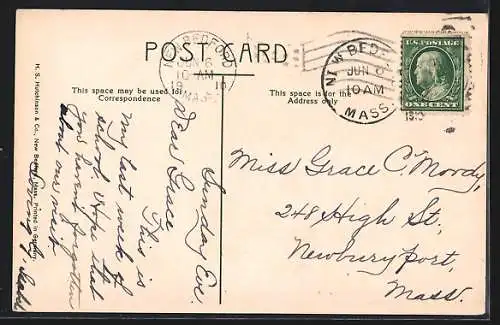 POST CARD
This space may be used for
Correspondence
This space is for the
Address only
NEW BEDFORD
JUN 6
10 AM
MASS.
NEW BED
JUN 6
10 AM
MASS.
1910
U.S. POSTAGE
ONE CENT
H. S. Hutchinson & Co., New Bedford, Mass. Printed in Germany
Sunday Eve.
Dear Grace
This is
my last week of
school Hope that
you havent forgotten
about our visit
Miss Grace C. Moody,
248 High St,
Newburyport,
Mass.